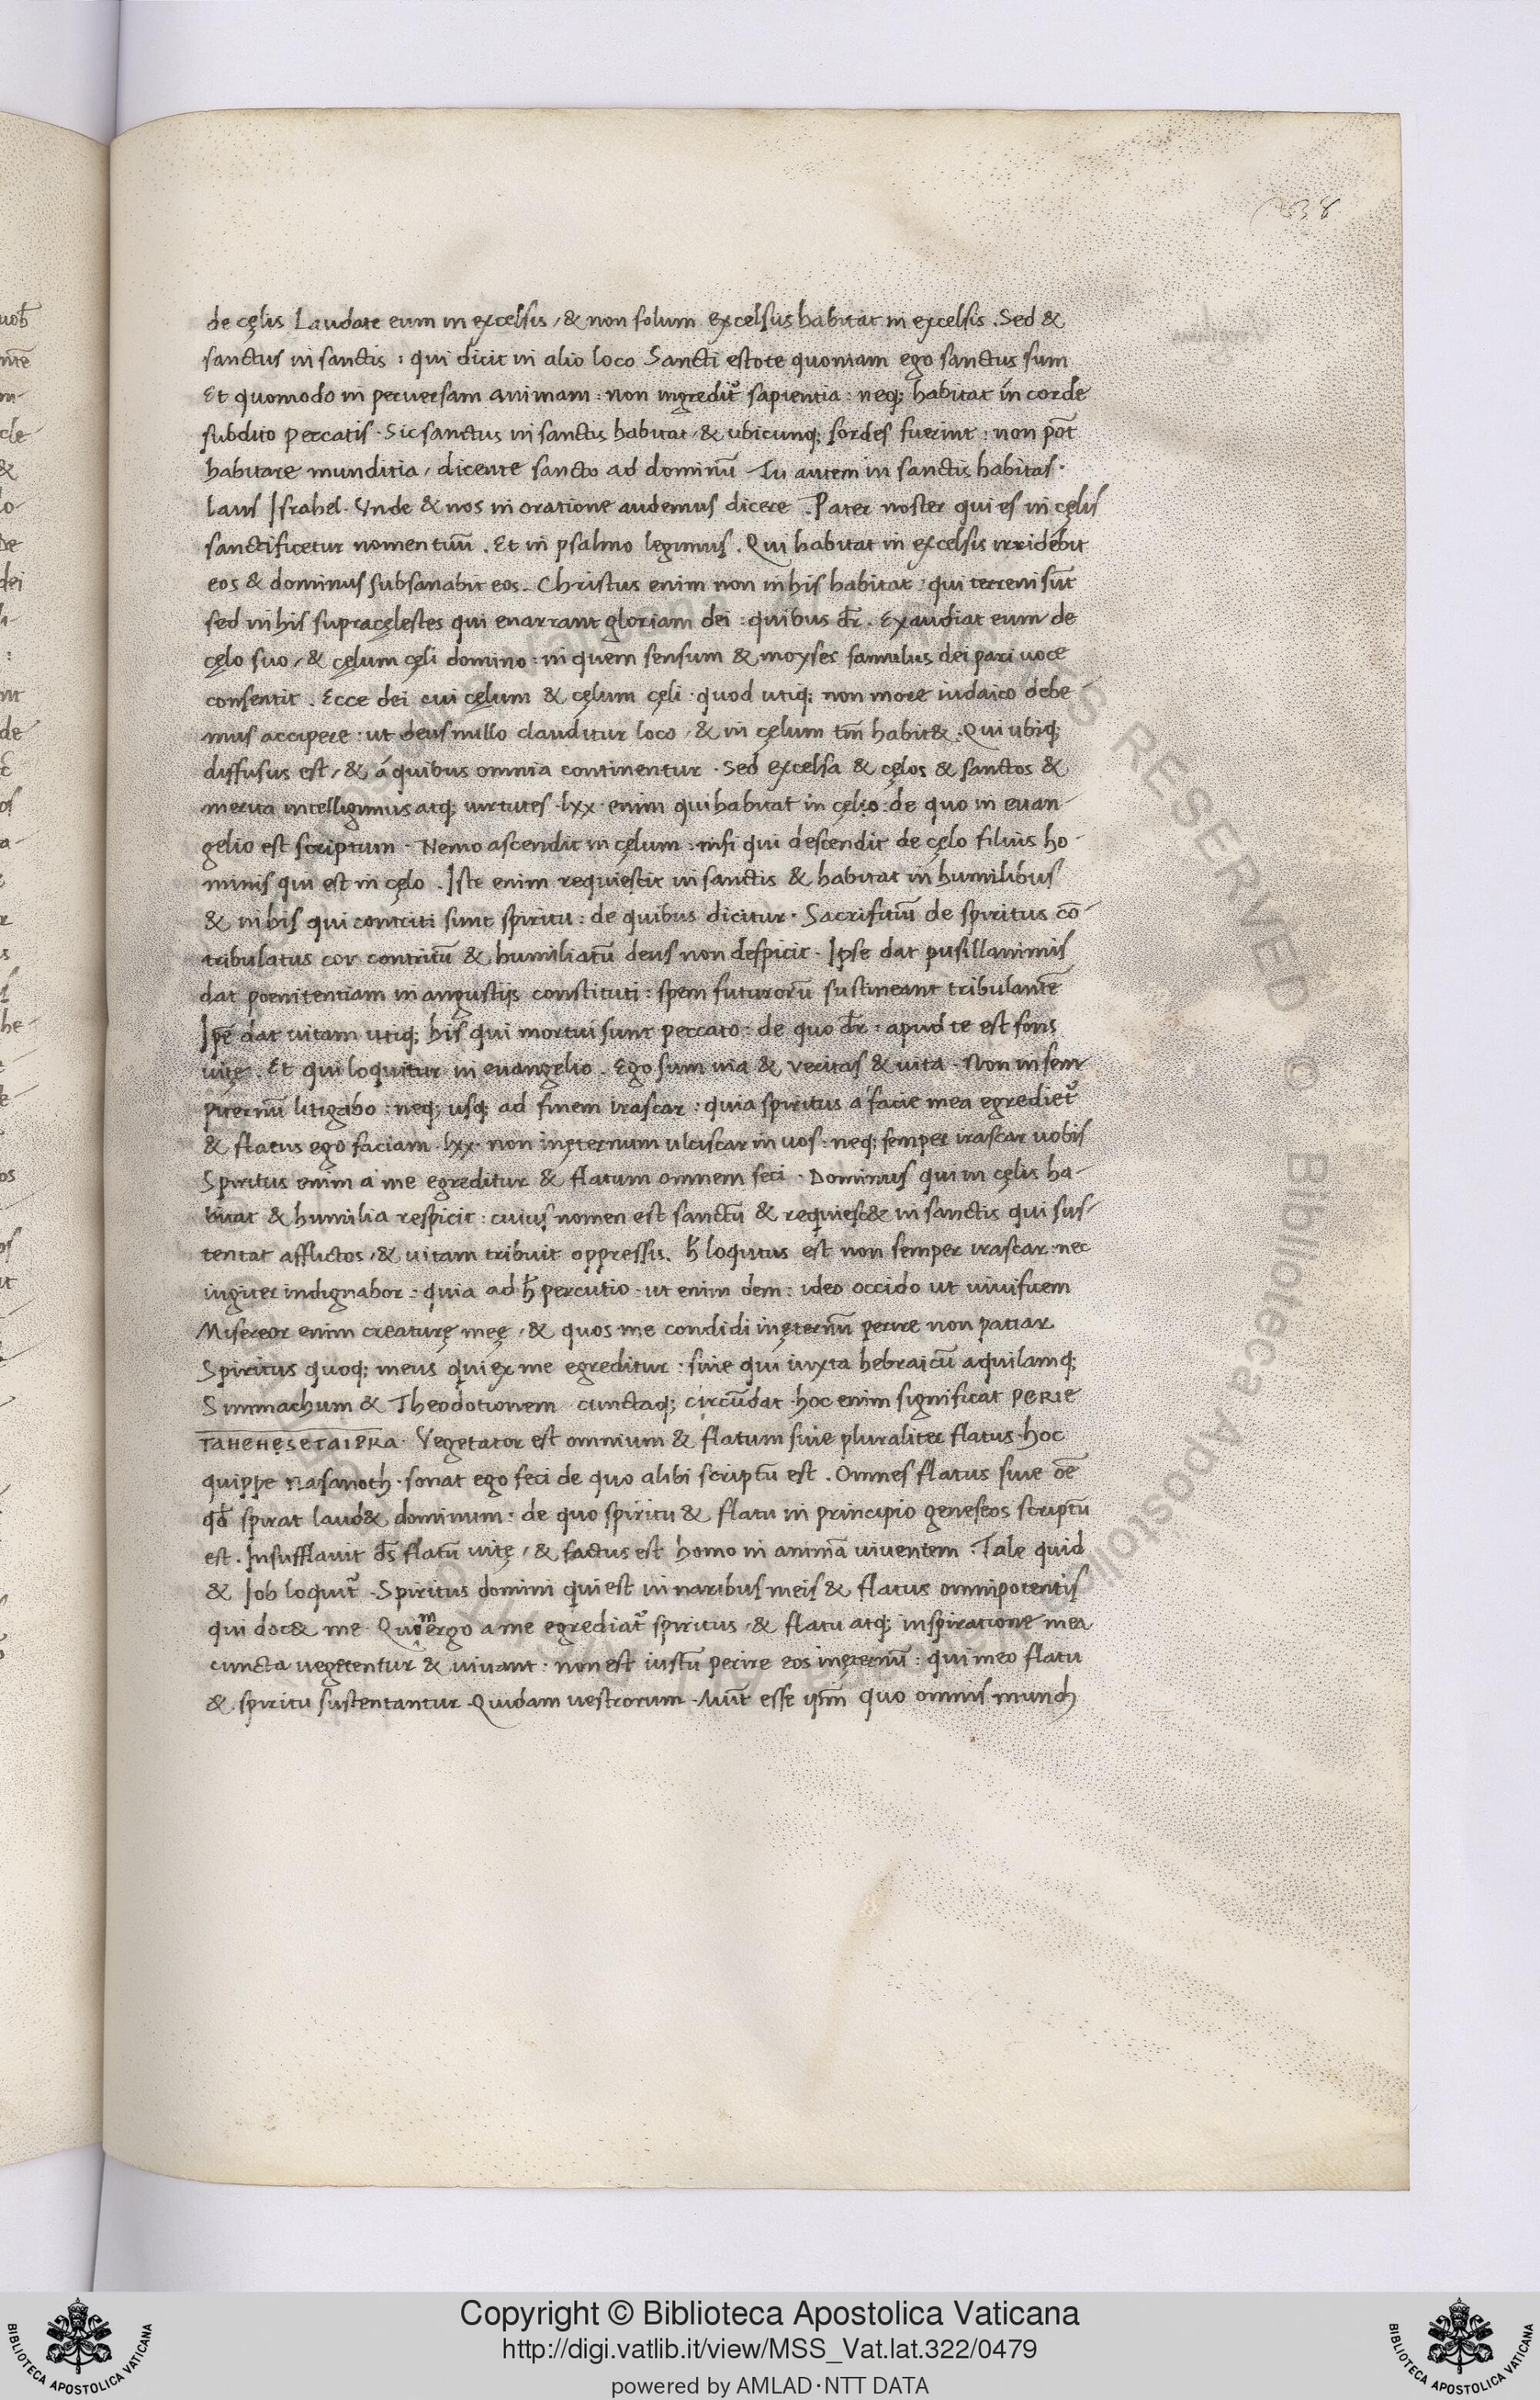 238
de cęlis Laudate eum in excelsis, & non solum excelsus habitat in excelsis. Sed &
sanctus in sanctis : qui dicit in alio loco Sancti estote quoniam ego sanctus sum
Et quomodo in peruersam animam : non ingredit᷑ sapientia : neq; habitat in corde
subdito peccatis. Sic sanctus in sanctis habitat, & ubicunq; sordes fuerint : non pōt
habitare munditia, dicente sancto ad dominū Tu autem in sanctis habitas.
laus Israhel. Vnde & nos in oratione audemus dicere. Pater noster qui es in cęlis
sanctificetur nomen tuū. Et in psalmo legimus. Qui habitat in excelsis irridebit
eos & dominus subsanabit eos. Christus enim non in his habitat, qui terreni sūt
sed in his supracęlestes qui enarrant gloriam dei : quibus dr̄. Exaudiat eum de
cęlo suo, & cęlum cęli domino : in quem sensum & moyses famulus dei pari uoce
consentit. Ecce dei cui cęlum & cęlum cęli. quod utiq; non more iudaico debe-
mus accipere : ut deus nullo clauditur loco, & in cęlum tm̄ habit&. Qui ubiq;
diffusus est, & á quibus omnia continentur. Sed excelsa & cęlos & sanctos &
merita intelligimus atq; uirtutes. lxx. enim qui habitat in cęlis : de quo in euan-
gelio est scriptum. Nemo ascendit in cęlum : nisi qui descendit de cęlo filius ho-
minis qui est in cęlo. Iste enim requiescit in sanctis & habitat in humilibus
& in his qui contriti sunt spiritu : de quibus dicitur. Sacrifitiū de spiritus cō-
tribulatus cor contritū & humiliatū deus non despicit. Ipse dat pusillanimis
dat poenitentiam in angustijs constituti : spem futurorū sustineant tribulantē
Ipē dat uitam utiq; his qui mortui sunt peccato : de quo dr̄. apud te est fons
uitę. Et qui loquitur in euangelio. Ego sum uia & ueritas & uita. Non in sem
piternū litigabo : neq; usq; ad finem irascar : quia spiritus a facie mea egrediet᷑
& flatus ego faciam. lxx. non inęternum ulciscar in uos : neq; semper irascar uobis
Spiritus enim á me egreditur & flatum omnem feci. Dominus qui in cęlis ha-
bitat & humilia respicit : cuius nomen est sanctū & requiesc& in sanctis qui sus-
tentat afflictos, & uitam tribuit oppressis. h̄ loqutus est non semper irascar : nec
iugiter indignabor : quia ad h̄ percutio. ut enim dem : ideo occido ut uiuificem
Misereor enim creaturę meę, & quos me condidi inęternū perire non patiar
Spiritus quoq; meus qui ex me egreditur : siue qui iuxta hebraicū aquilamq;
Simmachum & Theodotionem cunctaq; circūdat. hoc enim significat PERIE
TAHEHESETAIERA. Vegetator est omnium & flatum siue pluraliter flatus. hoc
quippe nasamoth. sonat ego feci de quo alibi scriptū est. Omnes flatus siue oē
qđ spirat laud& dominum : de quo spiritu & flatu in principio geneseos scriptū
est. Insufflauit ds̄ flatū uitę, & factus est homo in animā uiuentem. Tale quid
& Iob loquit᷑. Spiritus domini qui est in naribus meis & flatus omnipotentis
qui doc& me. Quom ergo a me egrediat᷑ spiritus, & flatu atq; inspiratione mea
cuncta uegetentur & uiuant : non est iustū perire eos inęternū : qui meo flatu
& spiritu sustentantur. Quidam uestrorum. esse quo omnis mundi
Copyright © Biblioteca Apostolica Vaticana
http://digi.vatlib.it/view/MSS_Vat.lat.322/0479
powered by AMLAD·NTT DATA